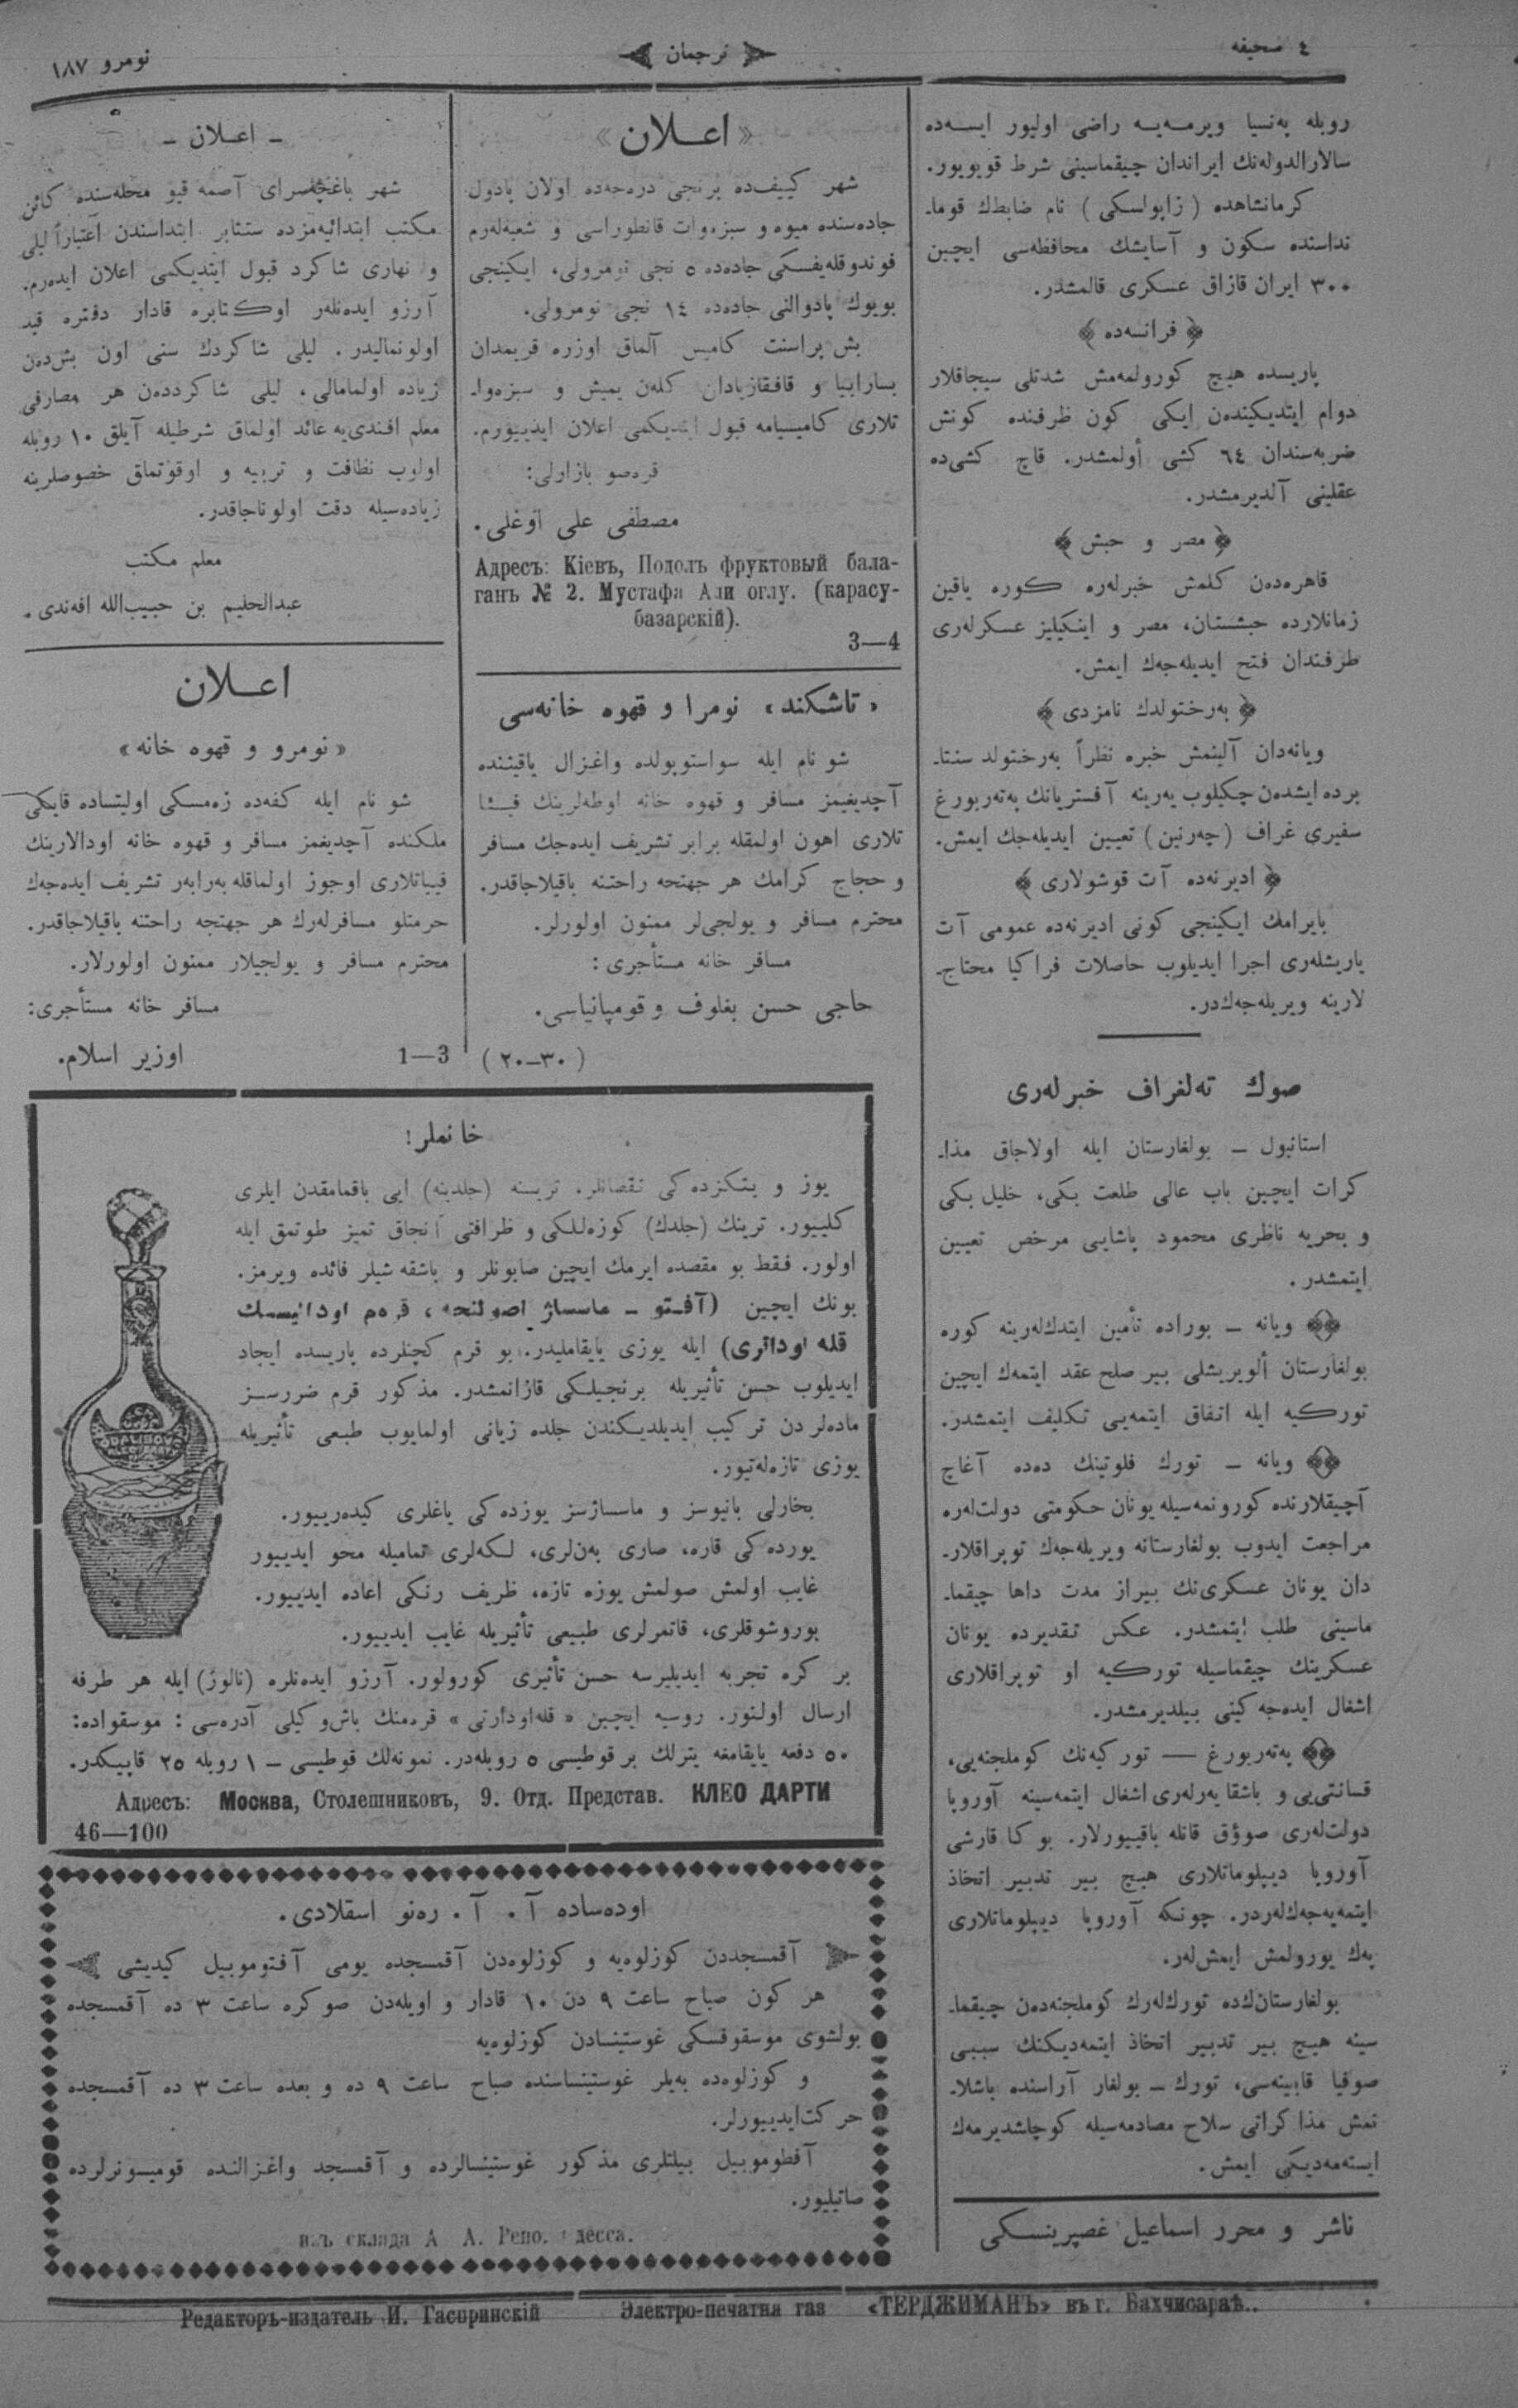 ٤ صحیفه
ترجمان
نومرو ١٨٧
روبله پەنسیا ویرمەیە راضی اولیور ایسەده
سالارالدولەنك ایراندان چیقماسینی شرط قویویور.
کرمانشاهده (زاپولسکی) نام ضابطك قوما-
نداسنده سکون و آسایشك محافظەسی ایچین
٣٠٠ ایران قازاق عسکری قالمشدر.
﴿ فرانسەده ﴾
پاریسده هیچ کورولمەمش شدتلی سیجاقلار
دوام ایتدیکیندەن ایکی کون ظرفنده کونش
ضربەسندان ٦٤ کشی أولمشدر. قاچ کشیده
عقلینی آلدیرمشدر.
﴿ مصر و حبش ﴾
قاهرەدەن کلمش خبرلەره کوره یاقین
زمانلارده حبشستان، مصر و اینکیلیز عسکرلەری
طرفندان فتح ایدیلەجەك ایمش.
﴿ بەرختولدك نامزدی ﴾
ویانەدان آلینمش خبره نظراً بەرختولد سنتا-
برده ایشدەن چکیلوب یەرینه آفستریانك پەتەربورغ
سفیری غراف (چەرنین) تعیین ایدیلەجك ایمش.
﴿ ادیرنەده آت قوشولاری ﴾
بایرامك ایکینجی کونی ادیرنەده عمومی آت
یاریشلەری اجرا ایدیلوب حاصلات فراکیا محتاج-
لارینه ویریلەجەكدر.
صوك تەلغراف خبرلەری
استانبول – بولغارستان ایله اولاجاق مذا-
کرات ایچین باب عالی طلعت بکی، خلیل بکی
و بحریه ناظری محمود پاشایی مرخص تعیین
ایتمشدر.
ویانه – بوراده تأمین ایتدكلەرینه کوره
بولغارستان ألویریشلی بیر صلح عقد ایتمەك ایچین
تورکیه ایله اتفاق ایتمەیی تکلیف ایتمشدر.
ویانه – تورك فلوتینك دەده آغاچ
آچیقلارنده کورونمەسیله یونان حکومتی دولتلەره
مراجعت ایدوب بولغارستانه ویریلەجەك توپراقلار-
دان یونان عسکرینك بیراز مدت داها چیقما-
ماسینی طلب ایتمشدر. عکس تقدیرده یونان
عسکرینك چیقماسیله تورکیه او توپراقلاری
اشغال ایدەجەکینی بیلدیرمشدر.
پەتەربورغ — تورکیەنك کوملجنەیی،
قسانتییی و باشقا یەرلەری اشغال ایتمەسینه آوروپا
دولتلەری صوؤق قانله باقییورلار. بوکا قارشی
آوروپا دیپلوماتلاری هیچ بیر تدبیر اتخاذ
ایتمەیەجەكلەردر. چونکه آوروپا دیپلوماتلاری
پەك یورولمش ایمشلەر.
بولغارستانكده تورکلەرك کوملجنەدەن چیقما-
سینه هیچ بیر تدبیر اتخاذ ایتمەدیکنك سببی
صوفیا قابینەسی، تورك – بولغار آراسنده باشلا-
نمش مذاکراتی سلاح مصادمەسیله کوچلشدیرمەك
ایستەمەدیکی ایمش.
ناشر و محرر اسماعیل غصپرینسکی
«اعلان»
شهر کییفده برنجی درەجەده اولان پادول
جادەسنده میوه و سبزەوات قانطوراسی و شعبەلەرم
فوندوقلەیفسکی جادەده ٥ نجی نومرولی، ایکینجی
بویوك پادوالنی جادەده ١٤ نجی نومرولی.
بش پراسنت کامیس آلماق اوزره قریمدان
بسارابیا و قافقازیادان کلەن یمیش و سبزەوا-
تلاری کامیسیامه قبول ایتدیکمی اعلان ایدییورم.
قرەصو بازارلی:
مصطفی علی اوغلی.
Адресъ: Кіевъ, Подолъ фруктовый бала-
ганъ № 2. Мустафа Али оглу. (карасу-
базарскій).
3—4
«تاشکند» نومرا و قهوه خانەسی
شو نام ایله سواستوپولده واغزال یاقیننده
آچدیغیمز مسافر و قهوه خانه اوطەلرینك فیئا
تلاری اهون اولمقله برابر تشریف ایدەجك مسافر
و حجاج کرامك هر جهتجه راحتنه باقیلاجاقدر.
محترم مسافر و یولجیلر ممنون اولورلر.
مسافر خانه مستأجری:
حاجی حسن بغلوف و قومپانیاسی.
(٣٠–٢٠)
– اعلان –
شهر باغچەسرای آصمه قپو محلەسنده کائن
مکتب ابتدائیەمزده سنتابر ابتداسندن اعتباراً لیلی
و نهاری شاکرد قبول ایتدیکمی اعلان ایدەرم.
آرزو ایدەنلەر اوکتابره قادار دفتره قید
اولونمالیدر. لیلی شاکردك سنی اون بشدەن
زیاده اولمامالی، لیلی شاکرددەن هر مصارفی
معلم افندییه عائد اولماق شرطیله آیلق ١٠ روبله
اولوب نظافت و تربیه و اوقوتماق خصوصلرینه
زیادەسیله دقت اولوناجاقدر.
معلم مکتب
عبدالحلیم بن حبیبالله افەندی.
اعلان
«نومرو و قهوه خانه»
شو نام ایله کفەده زەمسکی اولیتساده قاپکی
ملکنده آچدیغمز مسافر و قهوه خانه اودالارینك
فییاتلاری اوجوز اولماقله بەرابەر تشریف ایدەجەك
حرمتلو مسافرلەرك هر جهتجه راحتنه باقیلاجاقدر.
محترم مسافر و یولجیلار ممنون اولورلار.
مسافر خانه مستأجری:
اوزیر اسلام.
1—3
خانملر!
یوز و بتکزدەکی نقصانلر، ترینه (جلدینه) ایی باقمامقدن ایلری
کلییور. ترینك (جلدك) کوزەللکی و ظرافتی آنجاق تمیز طوتمق ایله
اولور. فقط بو مقصده ایرمك ایچین صابونلر و باشقه شیلر فائده ویرمز.
بونك ایچین (آفتو – ماسساژ
ایله یوزی یایقاملیدر. بو قرم کچنلرده پاریسده ایجاد
ایدیلوب حسن تأثیریله برنجیلکی قازانمشدر. مذکور قرم ضررسز
مادەلردن ترکیب ایدیلدیکندن جلده زیانی اولمایوب طبیعی تأثیریله
یوزی تازەلەتیور.
بخارلی بانیوسز و ماسساژسز یوزدەکی یاغلری کیدەرییور.
یوردەکی قاره، صاری بەنلری، لکەلری تمامیله محو ایدییور
غایب اولمش صولمش یوزه تازه، ظریف رنکی اعاده ایدییور.
بوروشوقلری، قاتمرلری طبیعی تأثیریله غایب ایدییور.
بر کره تجربه ایدیلیرسه حسن تأثیری کورولور. آرزو ایدەنلره (نالوژ) ایله هر طرفه
ارسال اولنور. روسیه ایچین «قلەاودارتی» قرەمنك باشوکیلی آدرەسی: موسقواده:
٥٠ دفعه یایقامغه یترلك بر قوطیسی ٥ روبلەدر. نمونەلك قوطیسی – ١ روبله ٢٥ قاپیکدر.
Адресъ: Москва, Столешниковъ, 9. Отд. Представ. КЛЕО ДАРТИ
46—100
اودەساده آ. آ. رەنو اسقلادی.
آقمسجددن کوزلوەیه و کوزلوەدن آقمسجده یومی آفتوموبیل کیدیشی
هر کون صباح ساعت ٩ دن ١٠ قادار و اویلەدن صوکره ساعت ٣ ده آقمسجده
بولشوی موسقوفسکی غوستینسادن کوزلوەیه
و کوزلوەده بەیلر غوستینساسنده صباح ساعت ٩ ده و بعده ساعت ٣ ده آقمسجده
حرکتایدییورلر.
آفطوموبیل بیلتلری مذکور غوستینسالرده و آقمسجد واغزالنده قومیسونرلرده
صاتیلیور.
изъ склада А. А. Рено.
Редакторъ-издатель И. Гаспринскій Электро-печатня газ «ТЕРДЖИМАНЪ» въ г. Бахчисараѣ..